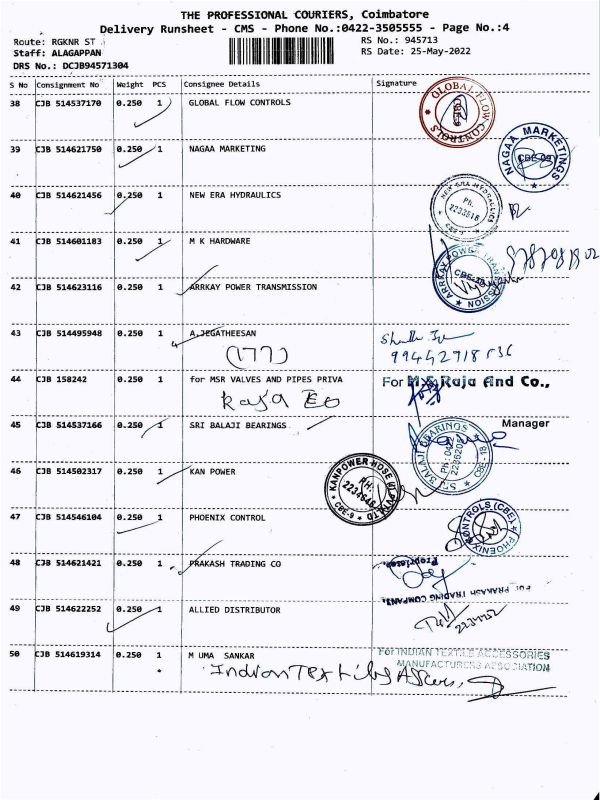 THE PROFESSIONAL COURIERS, Coimbatore
Delivery Runsheet - CMS - Phone No.:0422-3505555 - Page No.:4
Route: RGKNR ST
RS No.: 945713
Staff: ALAGAPPAN
RS Date: 25-May-2022
DRS No.: DCJB94571304
S No Consignment No Weight PCS Consignee Details Signature
38 CJB 514537170 0.250 1 GLOBAL FLOW CONTROLS
GLOBAL FLOW CONTROLS
39 CJB 514621750 0.250 1 NAGAA MARKETING
NAGAA MARKETINGS
40 CJB 514621456 0.250 1 NEW ERA HYDRAULICS
NEW ERA HYDRAULICS
PH.
2233618
41 CJB 514601183 0.250 1 M K HARDWARE
42 CJB 514623116 0.250 1 ARRKAY POWER TRANSMISSION
ARRKAY POWER TRANSMISSION
43 CJB 514495948 0.250 1 A.JEGATHEESAN
(177)
44 CJB 158242 0.250 1 for MSR VALVES AND PIPES PRIVA
Raja
For M.S.Raja And Co.,
Manager
45 CJB 514537166 0.250 1 SRI BALAJI BEARINGS
SRI BALAJI BEARINGS
46 CJB 514502317 0.250 1 KAN POWER
KANPOWER HOSE
PH:
CBE-9
47 CJB 514546104 0.250 1 PHOENIX CONTROL
PHOENIX CONTROLS (CBE)
48 CJB 514621421 0.250 1 PRAKASH TRADING CO
For PRAKASH TRADING COMPANY,
Proprietor
49 CJB 514622252 0.250 1 ALLIED DISTRIBUTOR
50 CJB 514619314 0.250 1 M UMA SANKAR
For INDIAN TEXTILE ACCESSORIES
MANUFACTURERS ASSOCIATION
Indian Textiles